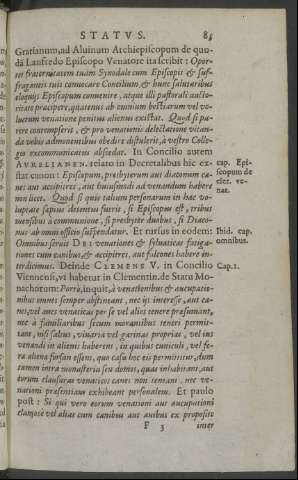 STATVS. 85
Gratianum, ad Aluinum Archiepiscopum de quo-
dā Lanfredo Episcopo Venatore ita scribit: Opor-
tet fraternitatem tuam Synodale cum Episcopis & suf-
fraganeis tuis conuocare Concilium, & hunc salutaribus
eloquijs Episcopum conuenire, atque illi pastorali aucto-
ritate præcipere, quatenus ab omnium bestiarum vel vo-
lucrum venatione penitus alienus existat. Quod si pa-
rere contempserit, & pro venationis delectatione vitan-
da vobis admonentibus obedire distulerit, à vestro Colle-
gio excommunicatus abscedat. In Concilio autem
AVRELIANEN. relato in Decretalibus hic ex-
stat canon: Episcopum, presbyterum aut diaconum ca-
nes aut accipitres, aut huiusmodi ad venandum habere
non licet. Quod si quis talium personarum in hac vo-
luptate sæpius detentus fuerit, si Episcopus est, tribus
mensibus à communione, si presbyter duobus, si Diaco-
nus ab omni officio suspendatur. Et rursus in eodem:
Omnibus seruis DEI venationes & syluaticas fatiga-
tiones cum canibus, & accipitres, aut falcones habere in-
terdicimus. Deinde CLEMENS V. in Concilio
Viennensi, vt habetur in Clementin. de Statu Mo-
nachorum: Porrò, inquit, à venationibus & aucupatio-
nibus omnes semper abstineant, nec ijs interesse, aut ca-
nes, vel aues venaticas per se vel alios tenere præsumant,
nec à familiaribus secum morantibus teneri permit-
tant, nisi saltus, viuaria vel garénas proprias, vel ius
venandi in alienis haberent, in quibus cuniculi, vel fe-
ræ aliena forsan essent, quo casu hoc eis permittitur, dum
tamen intra monasteria seu domos, quas inhabitant, aut
eorum clausuras venaticos canes non teneant, nec ve-
nationi præsentiam exhibeant personalem. Et paulo
post: Si qui vero eorum venationi aut aucupationi
clamosè vel alias cum canibus aut auibus ex proposito
F 3 inter
cap. Epi-
scopum de
cler. ve-
nat.
Ibid. cap.
omnibus.
Cap. 1.